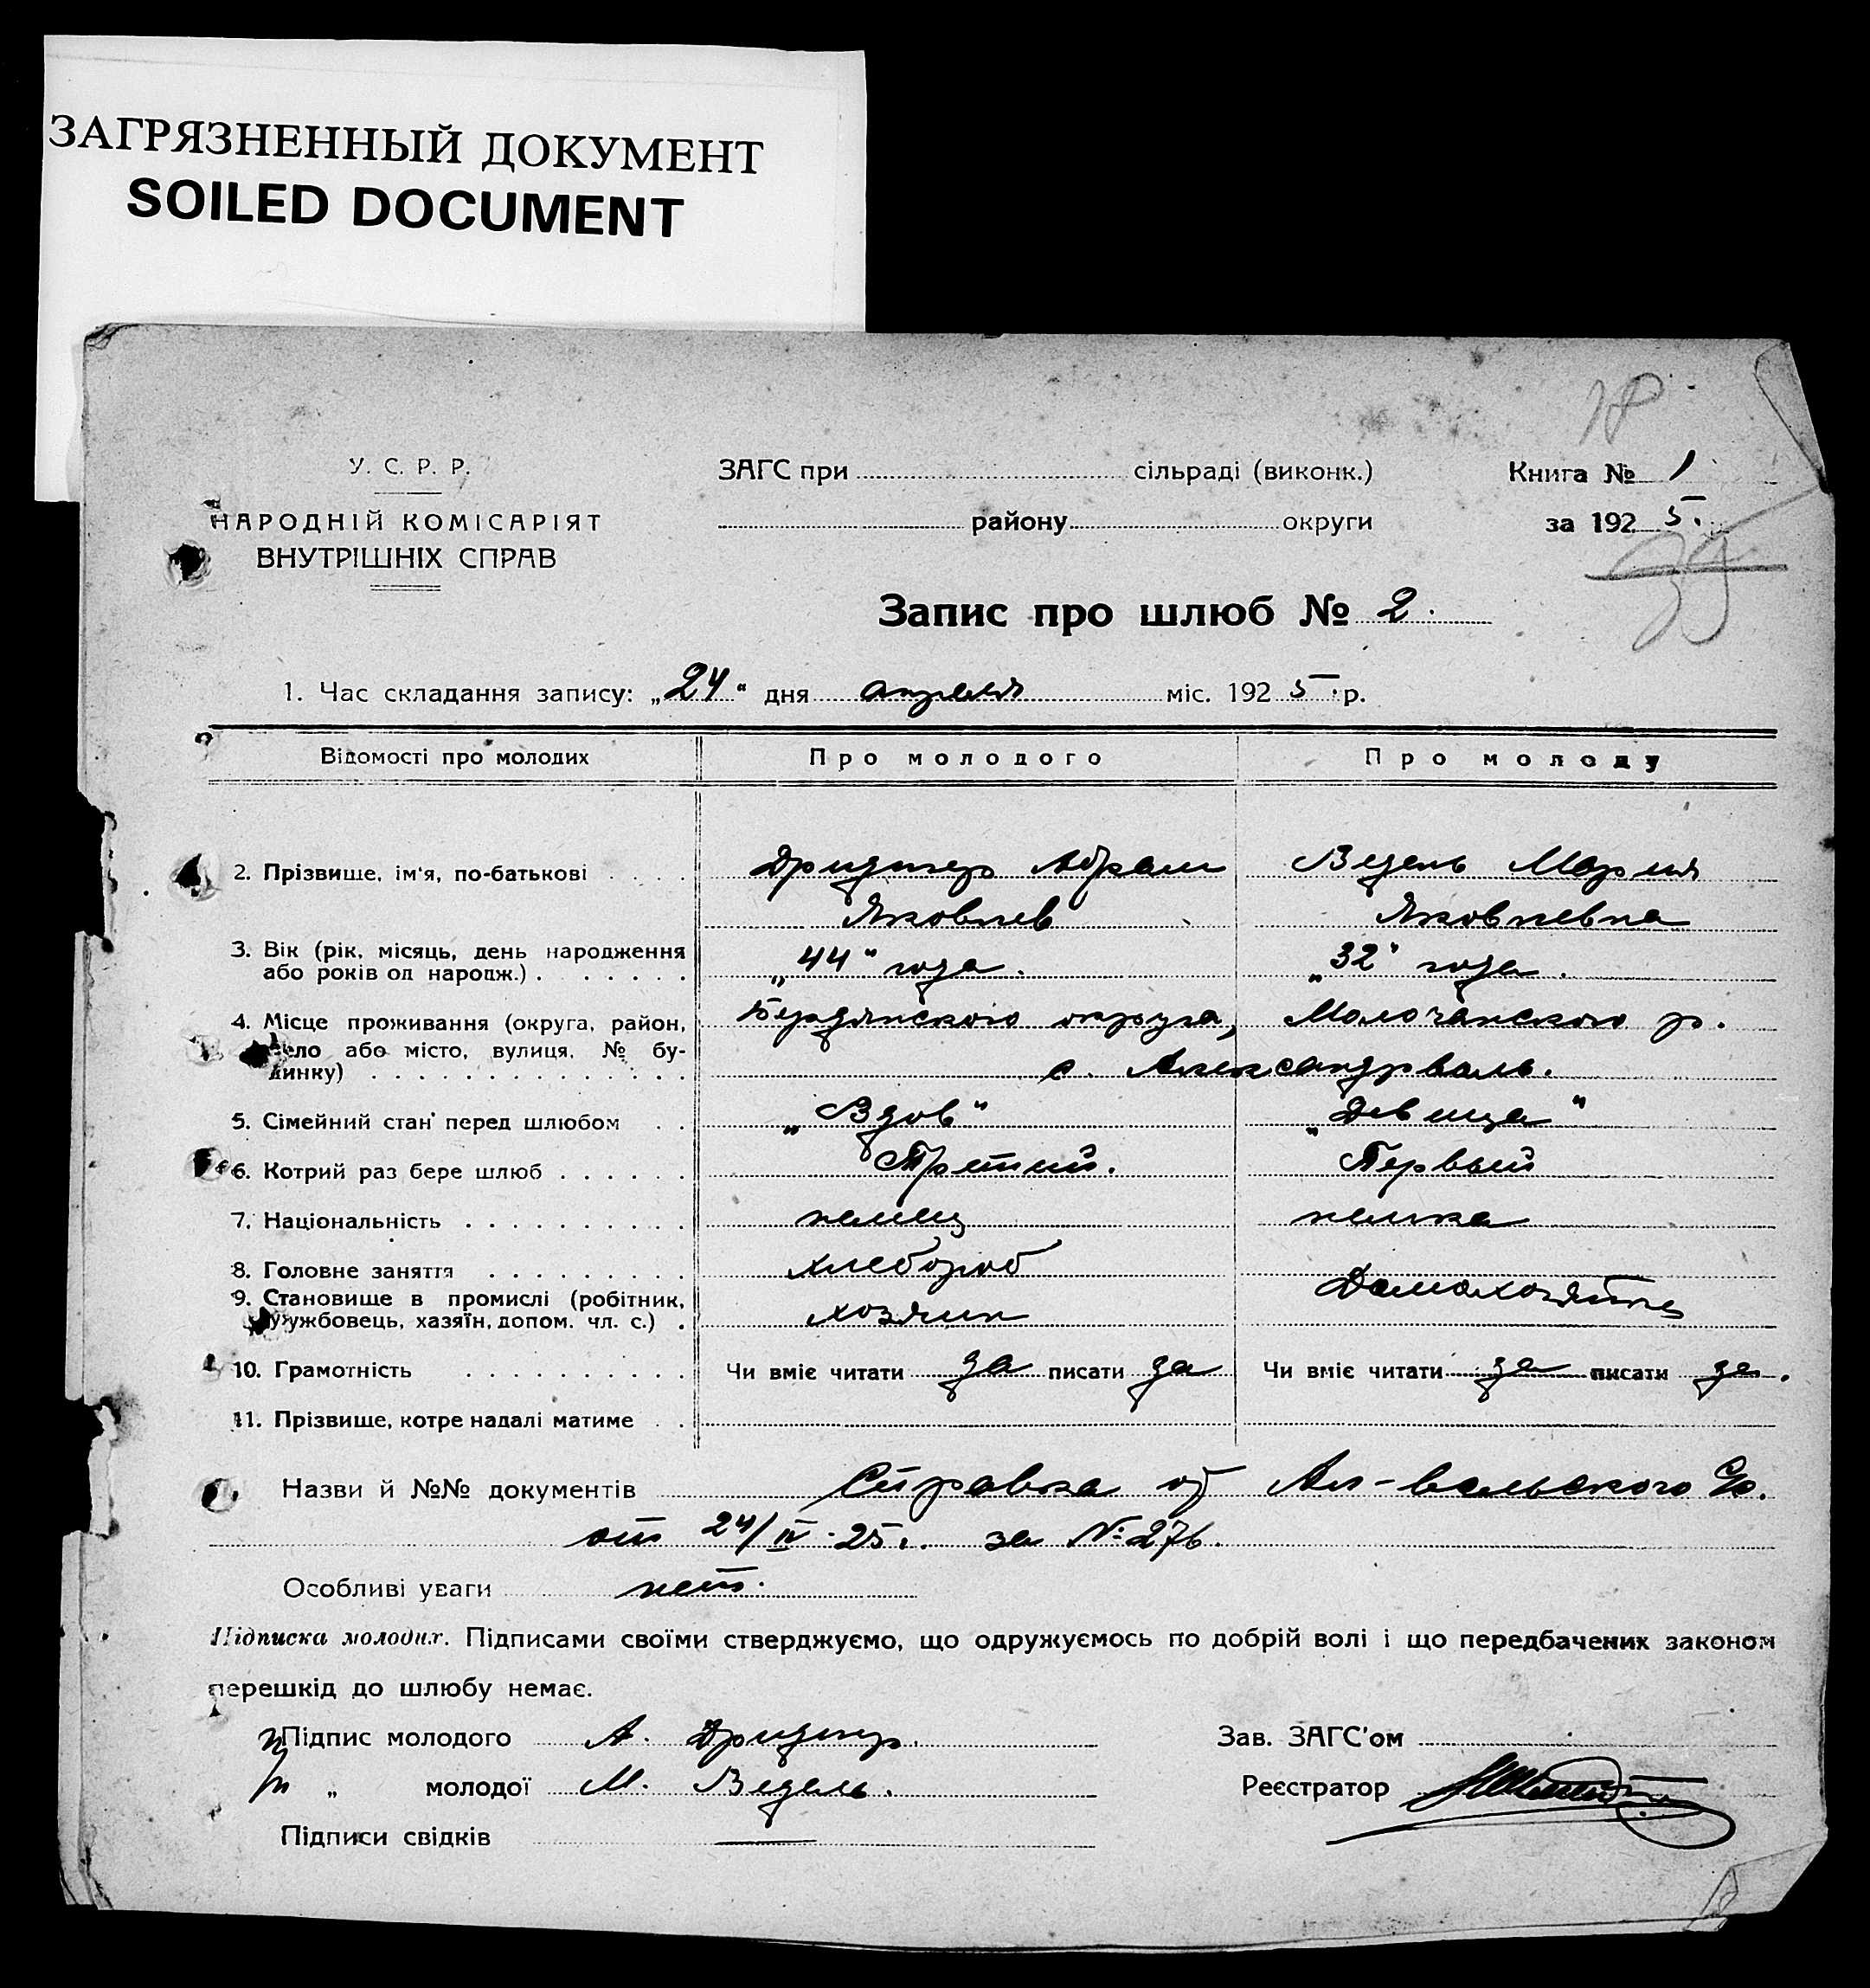 ЗАГРЯЗНЕННЫЙ ДОКУМЕНТ
SOILED DOCUMENT
18
У. С. Р. Р.
НАРОДНІЙ КОМІСАРІЯТ
ВНУТРІШНІХ СПРАВ
ЗАГС при сільраді (виконк.)
району округи
Книга № 1
за 192 5.
39
Запис про шлюб № 2.
1. Час складання запису: „24“ дня апреля міс. 192 5. р.
Відомості про молодих Про молодого Про молоду
2. Прізвище, ім'я, по-батькові Дридигер Абрам Ведель Мария
Яковлев Яковлевна
3. Вік (рік, місяць, день народження
або років од народж.) „44“ года. „32“ года.
4. Місце проживання (округа, район, Бердянского округа, Молочанского р.
село або місто, вулиця, № бу-
динку) с. Александрваль.
5. Сімейний стан перед шлюбом „Вдов“ „Девица“
6. Котрий раз бере шлюб Третий. Первый
7. Національність немец немка
8. Головне заняття хлебороб
Домохозяйка
9. Становище в промислі (робітник,
службовець, хазяїн, допом. чл. с.) хозяин
10. Грамотність Чи вміє читати да писати да Чи вміє читати да писати да.
11. Прізвище, котре надалі матиме
Назви й №№ документів Справка от Ал-вальского С/с.
от 24/IV-25г. за №276.
Особливі уваги нет.
Підписка молодих. Підписами своїми стверджуємо, що одружуємось по добрій волі і що передбачених законом
перешкід до шлюбу немає.
Підпис молодого А. Дридигер.
„ молодої М. Ведель.
Підписи свідків
Зав. ЗАГС'ом
Реєстратор